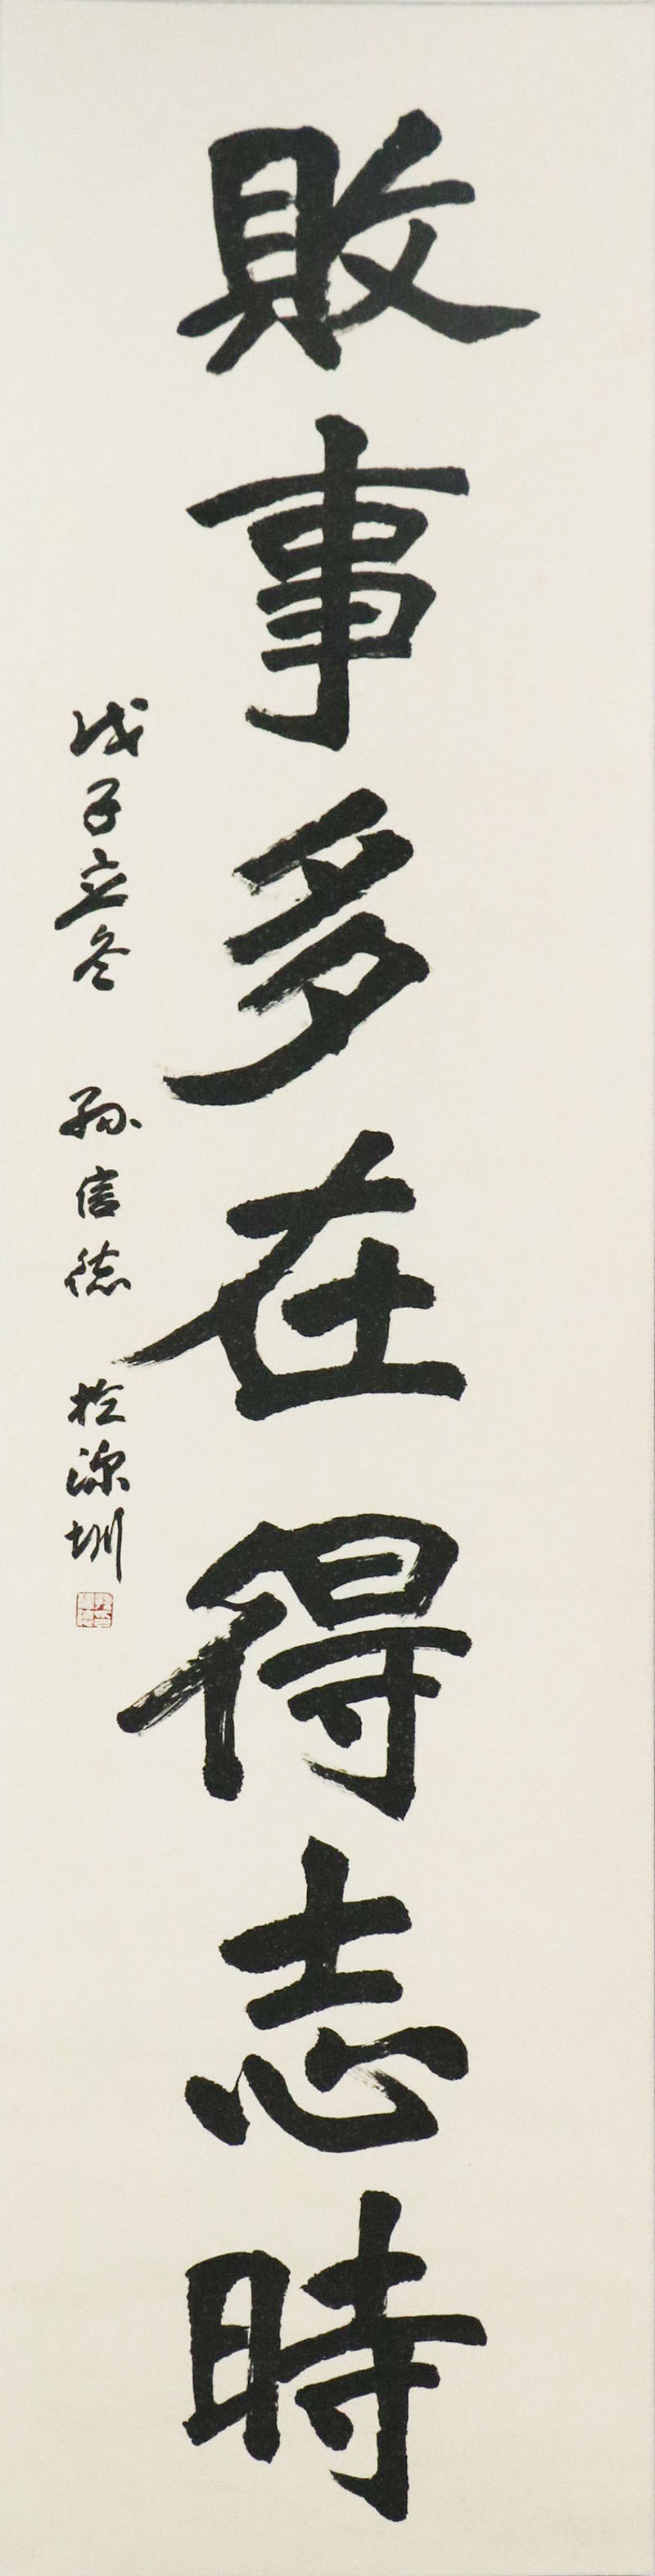 敗事多在得志時
戊子立冬 孫信德 於深圳